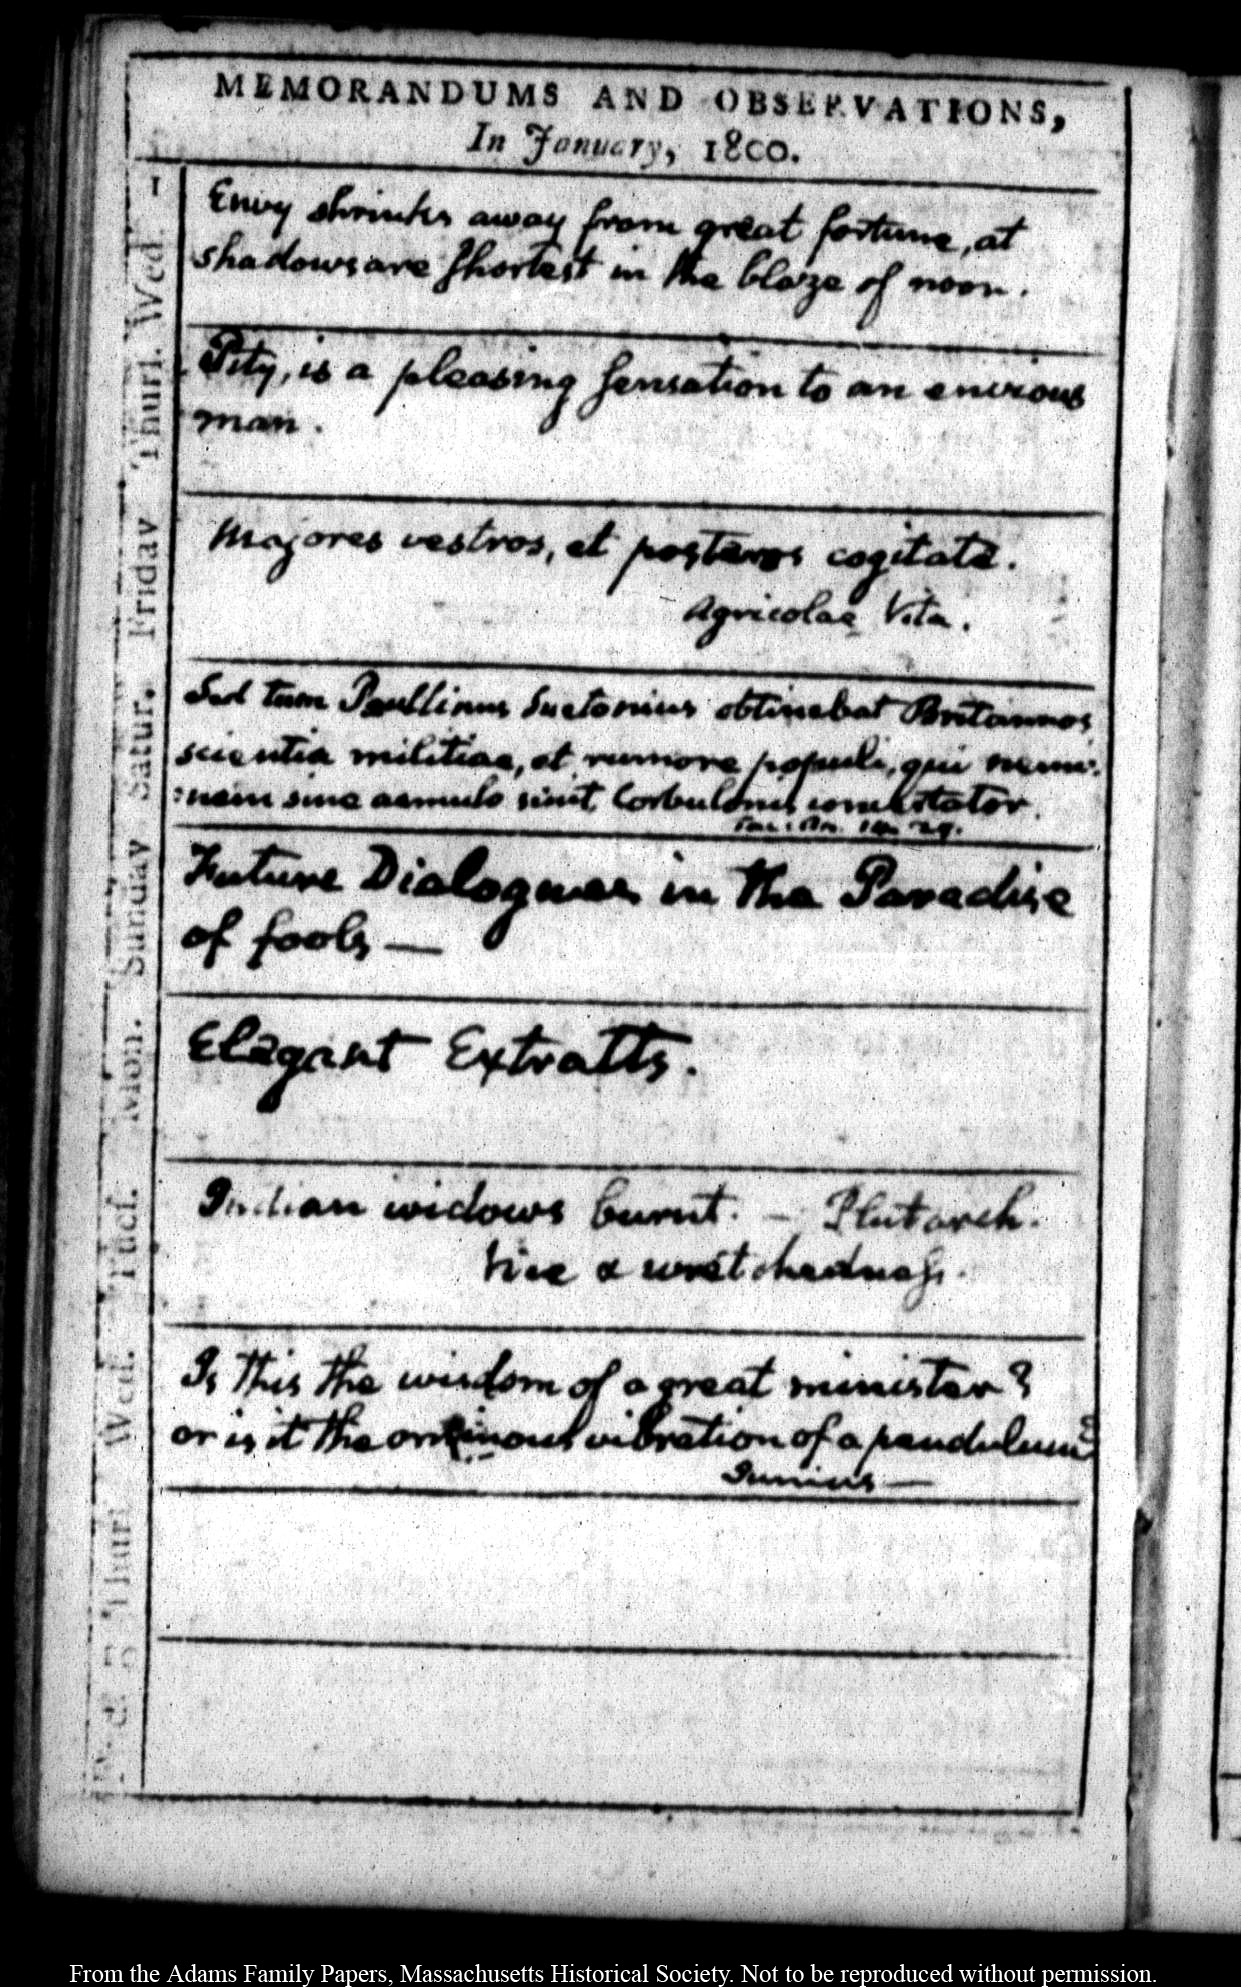 MEMORANDUMS AND OBSERVATIONS,
In January, 1800.
1
Wed.
Envy shrinks away from great fortune, at
shadows are shortest in the blaze of noon.
Thurs.
Pity, is a pleasing sensation to an envious
man.
Friday
Majores vestros, et posteros cogitate.
Agricolae Vita.
Satur.
Sed tum Paullinus Suetonius obtinebat Britannos,
scientia militiae, et rumore populi, qui nemi-
:nem sine aemulo sinit Corbulonis concertator.
Tac. An. 14. 29.
Sunday
Future Dialogues in the Paradise
of fools —
Mon.
Elegant Extratts.
Tues.
Indian widows burnt. — Plutarch.
Vice & wretchedness.
Wed.
Is this the wisdom of a great minister?
or is it the ominous vibration of a pendulum?
Junius —
Thur
From the Adams Family Papers, Massachusetts Historical Society. Not to be reproduced without permission.